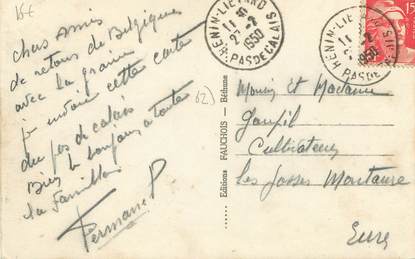 chers Amis
de retour de Belgique
avec la
je envoie cette carte
du pas de calais
Bien le toujours a toute
la Famille
Fermane P
HENIN-LIETARD
11 30
27-2
1950
PAS DE CALAIS
(62)
Editions FAUCHOIS - Béthune
HENIN-LIE
1950
PAS DE
15
Monsieur et Madame
Goupil
Cultivateurs
Les Fosses
Eure